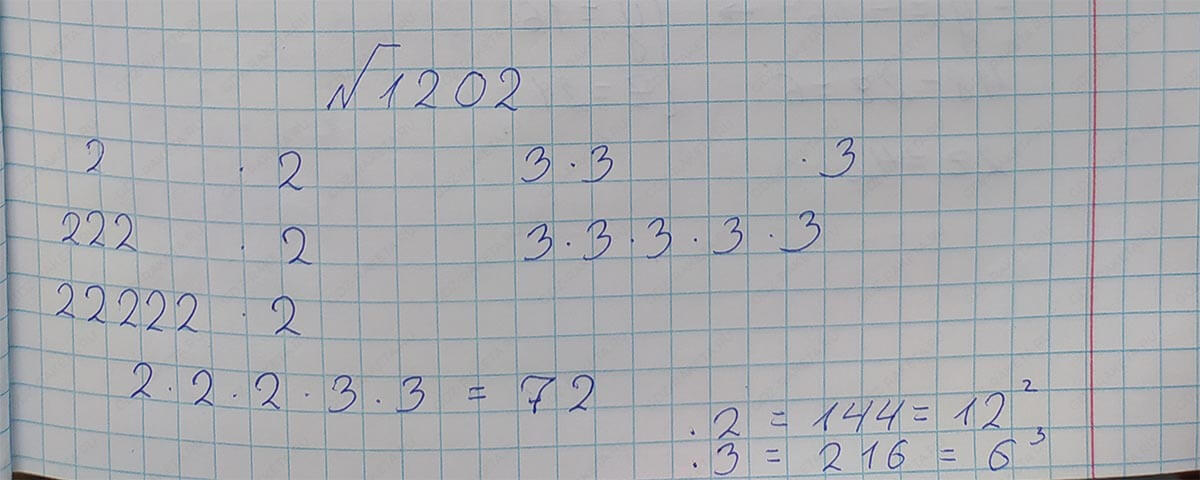 №1202
2 · 2 3 · 3 · 3
222 · 2 3 · 3 · 3 · 3 · 3
22222 · 2
2 · 2 · 2 · 3 · 3 = 72
· 2 = 144 = 12²
· 3 = 216 = 6³